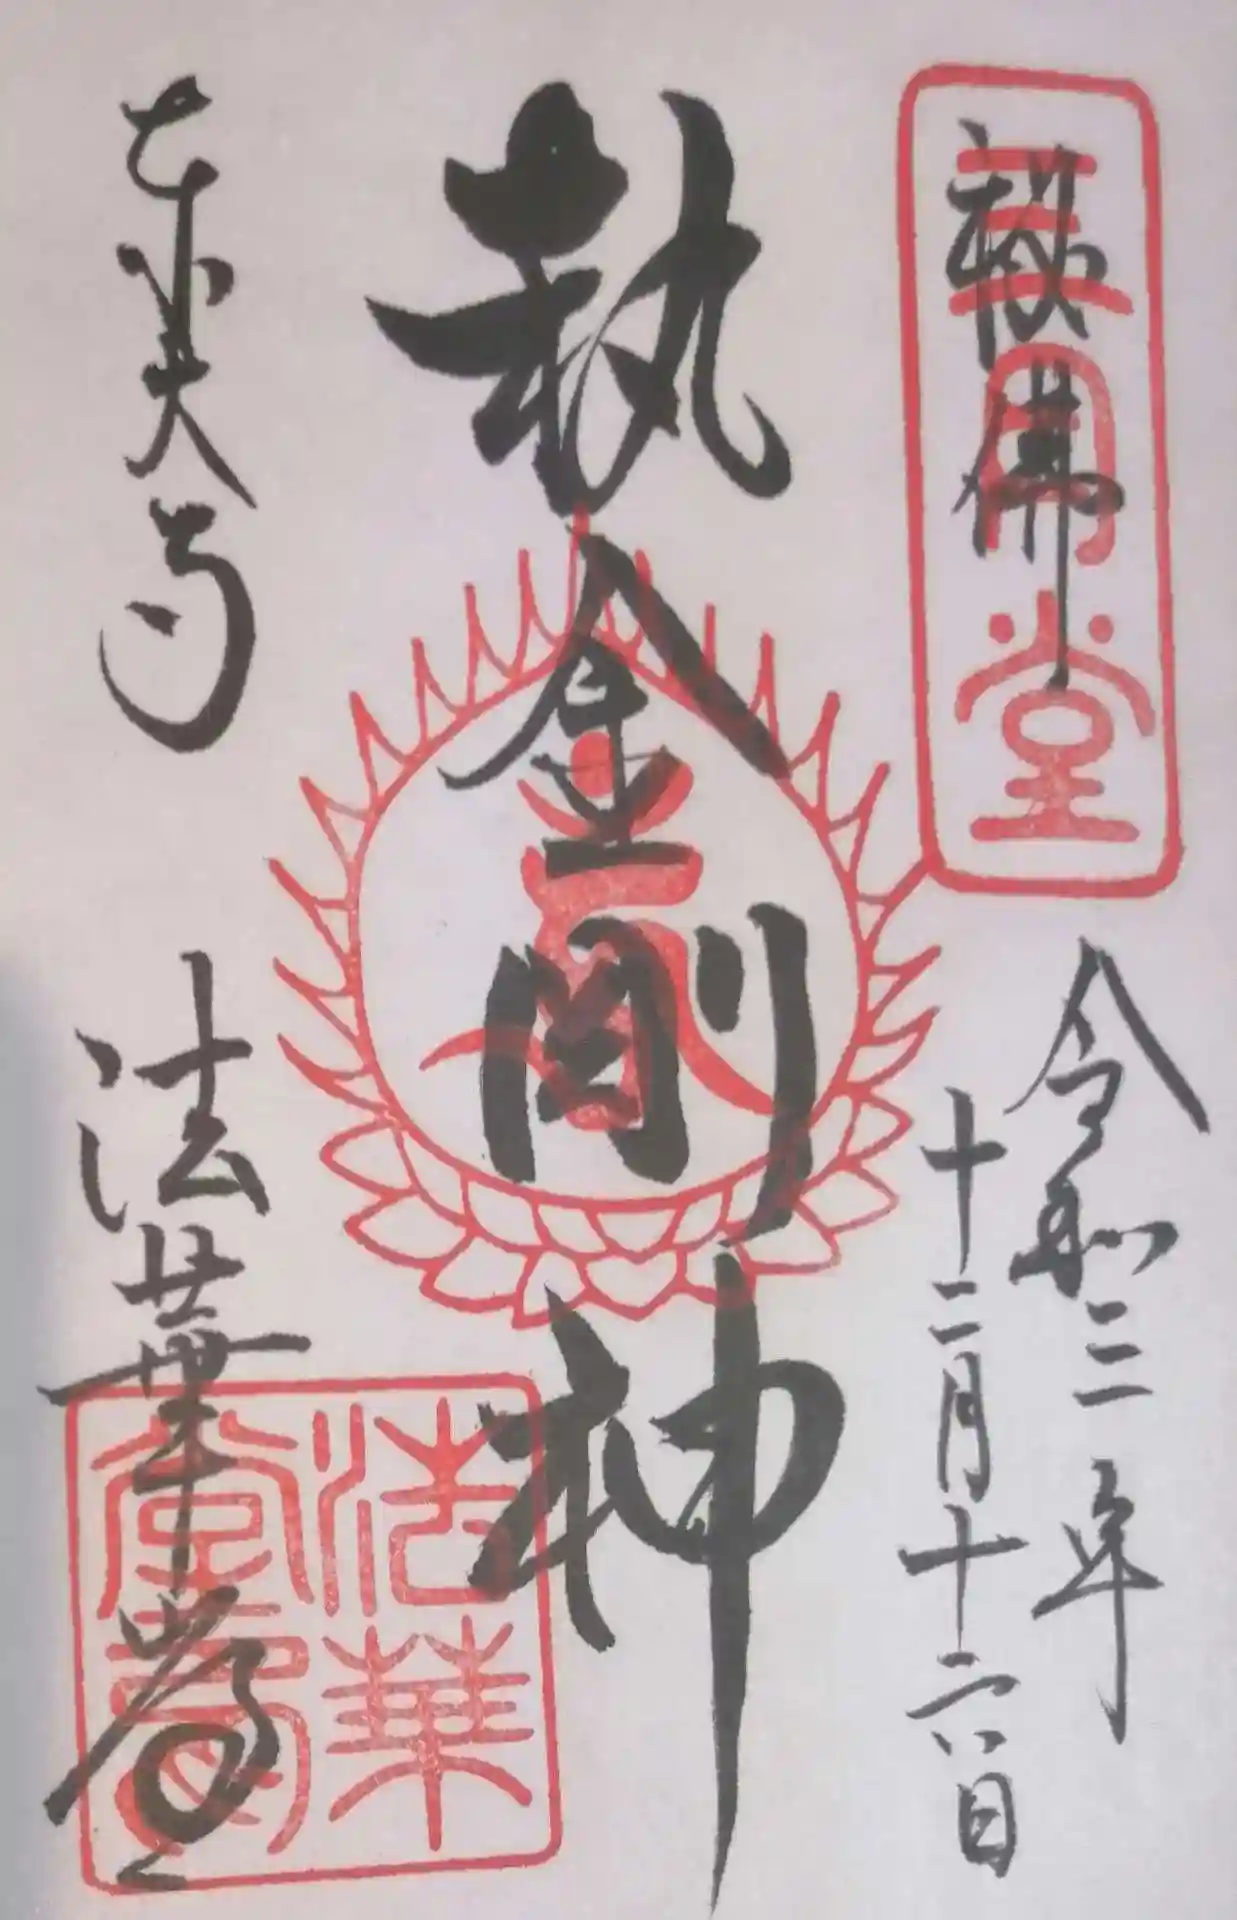 秘佛
三月堂
令和三年
十二月十六日
執金剛神
東大寺
法華堂
法華堂